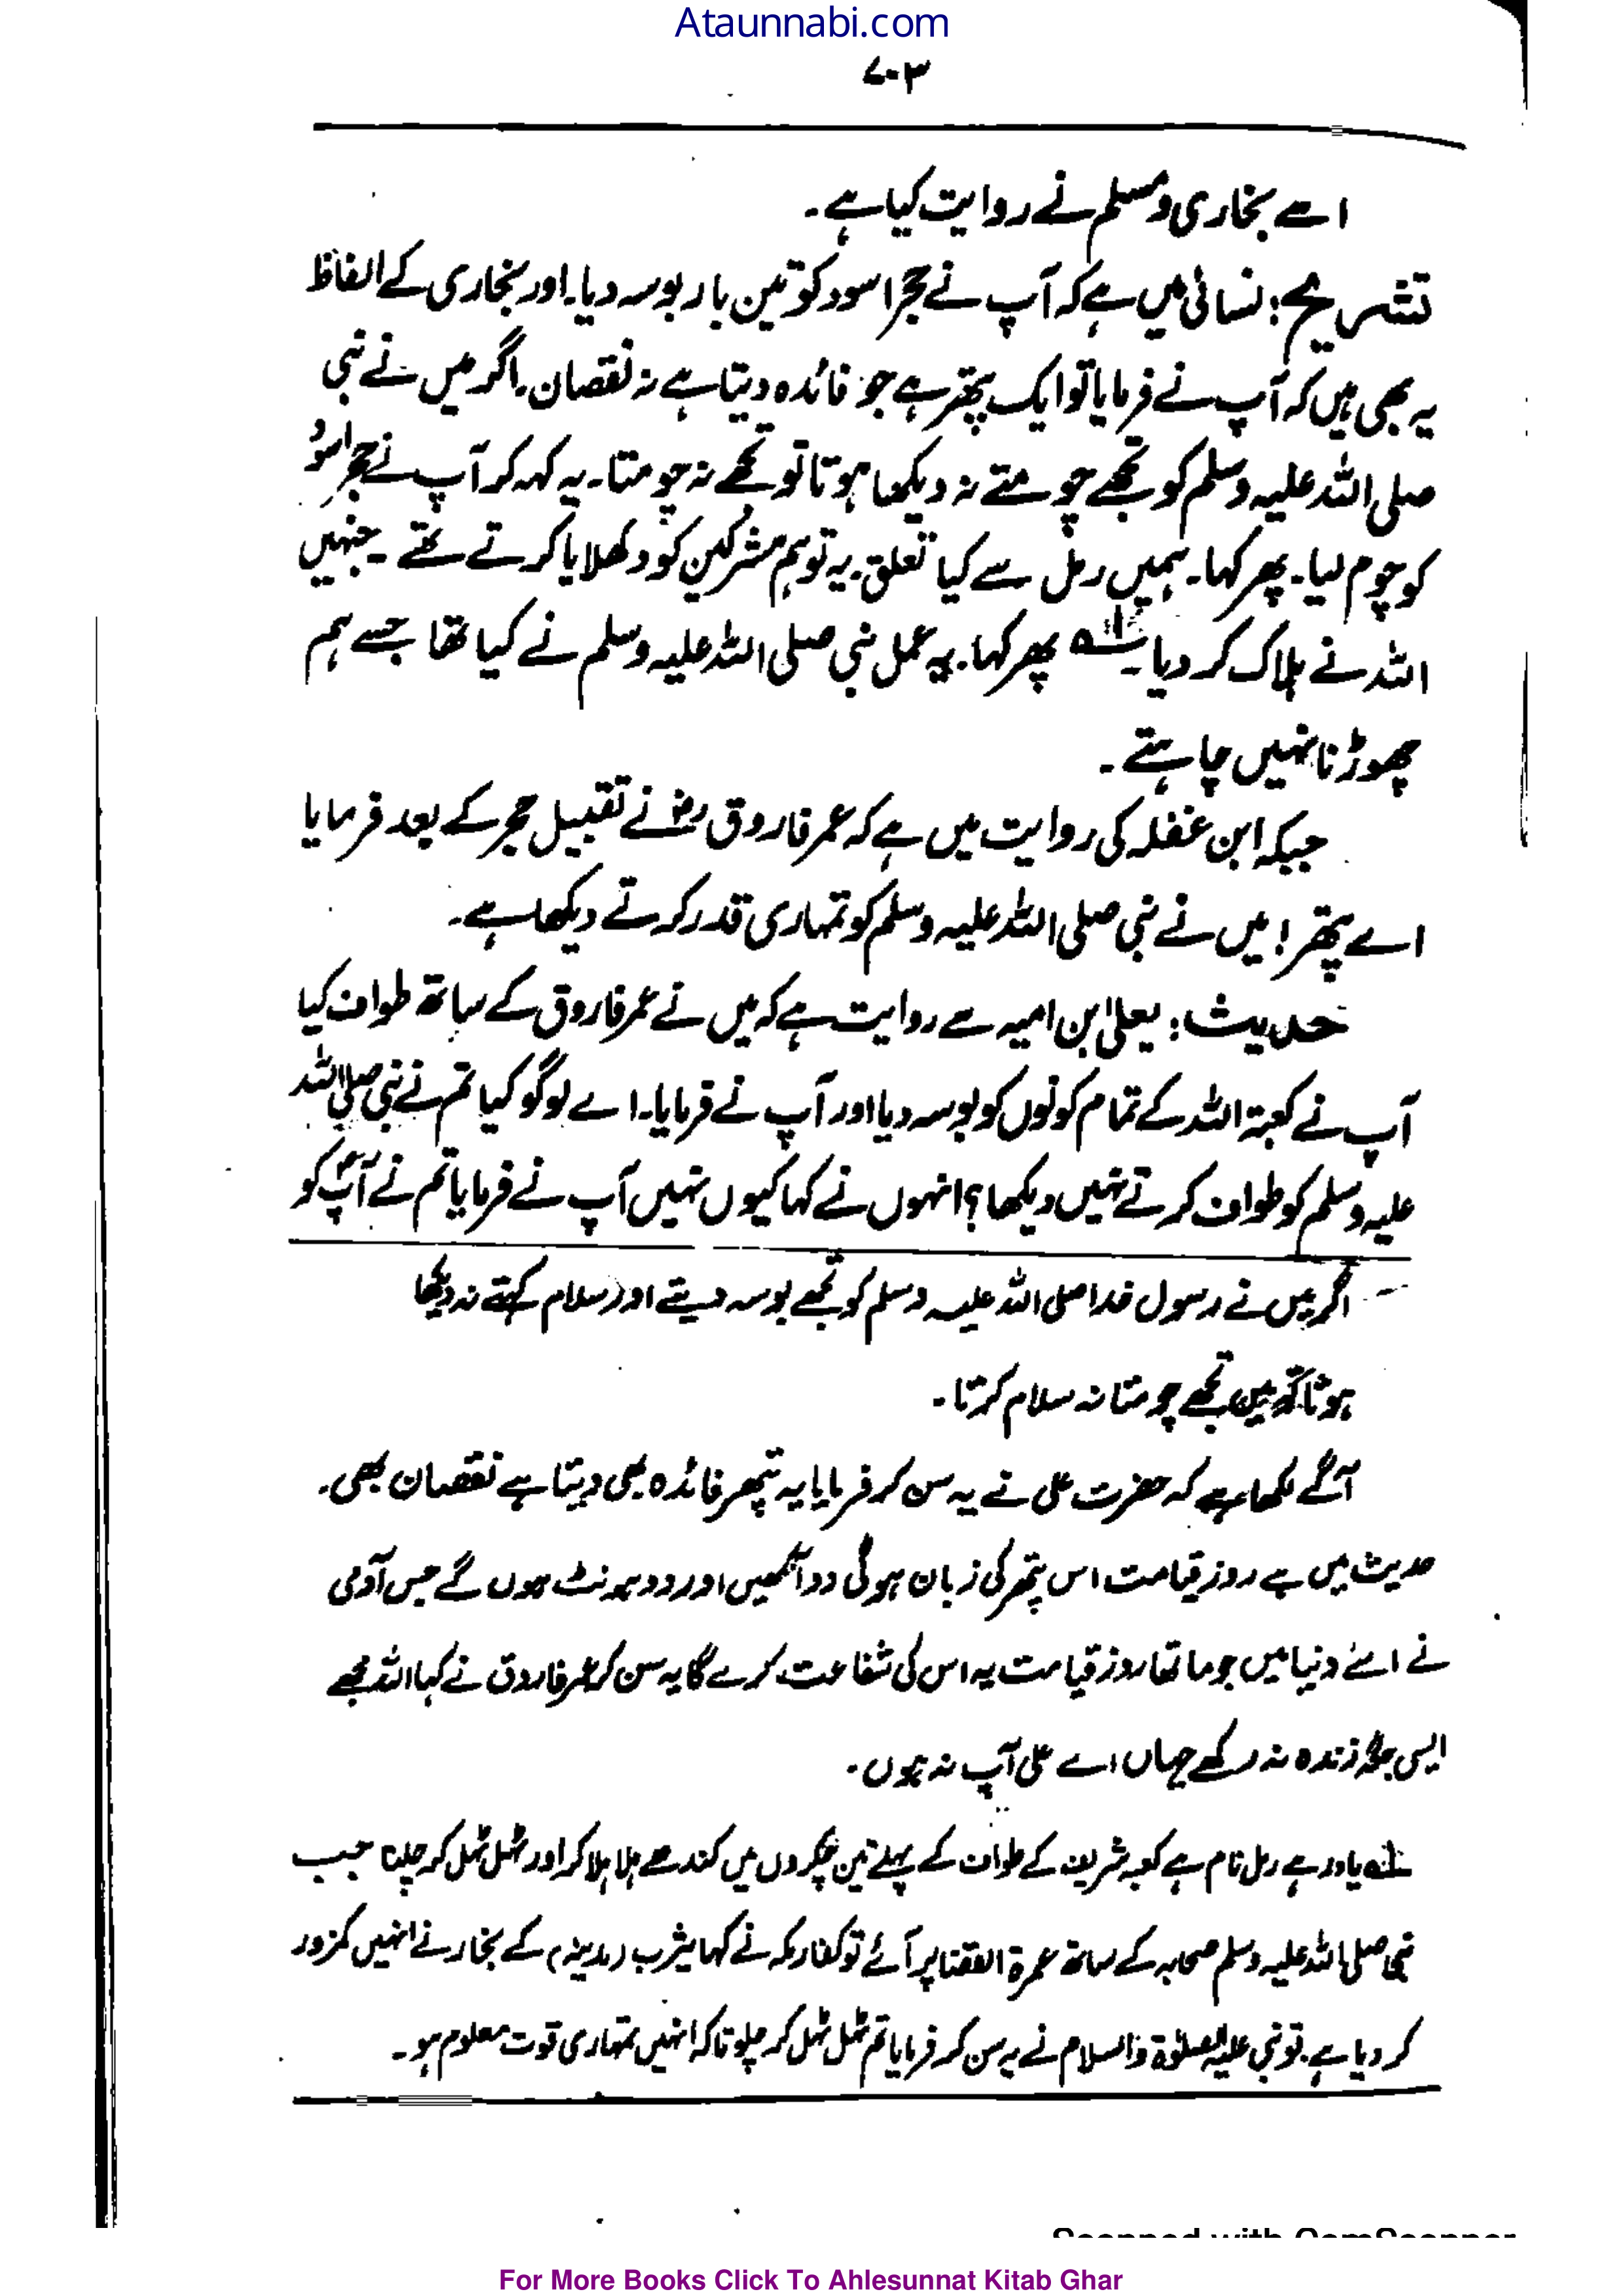 Ataunnabi.com
۷۰۳
اسے بخاری و مسلم نے روایت کیا ہے۔
تشریح: نسائی میں ہے کہ آپ نے حجر اسود کو تین بار بوسہ دیا۔ اور بخاری کے الفاظ
یہ بھی ہیں کہ آپ نے فرمایا تو ایک پتھر ہے جو فائدہ دیتا ہے نہ نقصان۔ اگر میں نے نبی
صلی اللہ علیہ وسلم کو تجھے چومتے نہ دیکھا ہوتا تو تجھے نہ چومتا۔ یہ کہہ کر آپ نے حجر اسود
کو چوم لیا۔ پھر کہا۔ ہمیں رمل سے کیا تعلق۔ یہ تو ہم مشرکین کو دکھلایا کرتے تھے۔ جنہیں
اللہ نے ہلاک کر دیا۔ لہ پھر کہا۔ یہ عمل نبی صلی اللہ علیہ وسلم نے کیا تھا جسے ہم
چھوڑنا نہیں چاہتے۔
جبکہ ابن غفلہ کی روایت میں ہے کہ عمر فاروق رضؓ نے تقبیل حجر کے بعد فرمایا
اے پتھر! میں نے نبی صلی اللہ علیہ وسلم کو تمہاری قدر کرتے دیکھا ہے۔
حدیث: یعلیٰ ابن امیہ سے روایت ہے کہ میں نے عمر فاروق کے ساتھ طواف کیا
آپ نے کعبۃ اللہ کے تمام کونوں کو بوسہ دیا اور آپ نے فرمایا۔ اے لوگو کیا تم نے نبی صلی اللہ
علیہ وسلم کو طواف کرتے نہیں دیکھا؟ انہوں نے کہا کیوں نہیں آپ نے فرمایا تم نے آپؐ کو
اگر میں نے رسول خدا صلی اللہ علیہ وسلم کو تجھے بوسہ دیتے اور سلام کہتے نہ دیکھا
ہوتا تو میں تجھے چومتا نہ سلام کرتا۔
آگے لکھا ہے کہ حضرت علی نے یہ سن کر فرمایا یہ پتھر فائدہ بھی دیتا ہے نقصان بھی۔
حدیث میں ہے روز قیامت اس پتھر کی زبان ہوگی دو آنکھیں اور دو ہونٹ ہوں گے جس آدمی
نے اسے دنیا میں چوما تھا روز قیامت یہ اس کی شفاعت کرے گا یہ سن کر عمر فاروق نے کہا اللہ مجھے
ایسی جگہ زندہ نہ رکھے جہاں اے علی آپ نہ ہوں۔
لہ یاد رہے رمل نام ہے کعبہ شریف کے طواف کے پہلے تین چکروں میں کندھے ہلا ہلا کر اور ٹہل ٹہل کر چلنا جب
نبی صلی اللہ علیہ وسلم صحابہ کے ساتھ عمرۃ القضا پر آئے تو کفار مکہ نے کہا یثرب (مدینہ) کے بخار نے انہیں کمزور
کر دیا ہے۔ تو نبی علیہ الصلوٰۃ والسلام نے یہ سن کر فرمایا تم ٹہل ٹہل کر چلو تاکہ انہیں تمہاری قوت معلوم ہو۔
Scanned with CamScanner
For More Books Click To Ahlesunnat Kitab Ghar